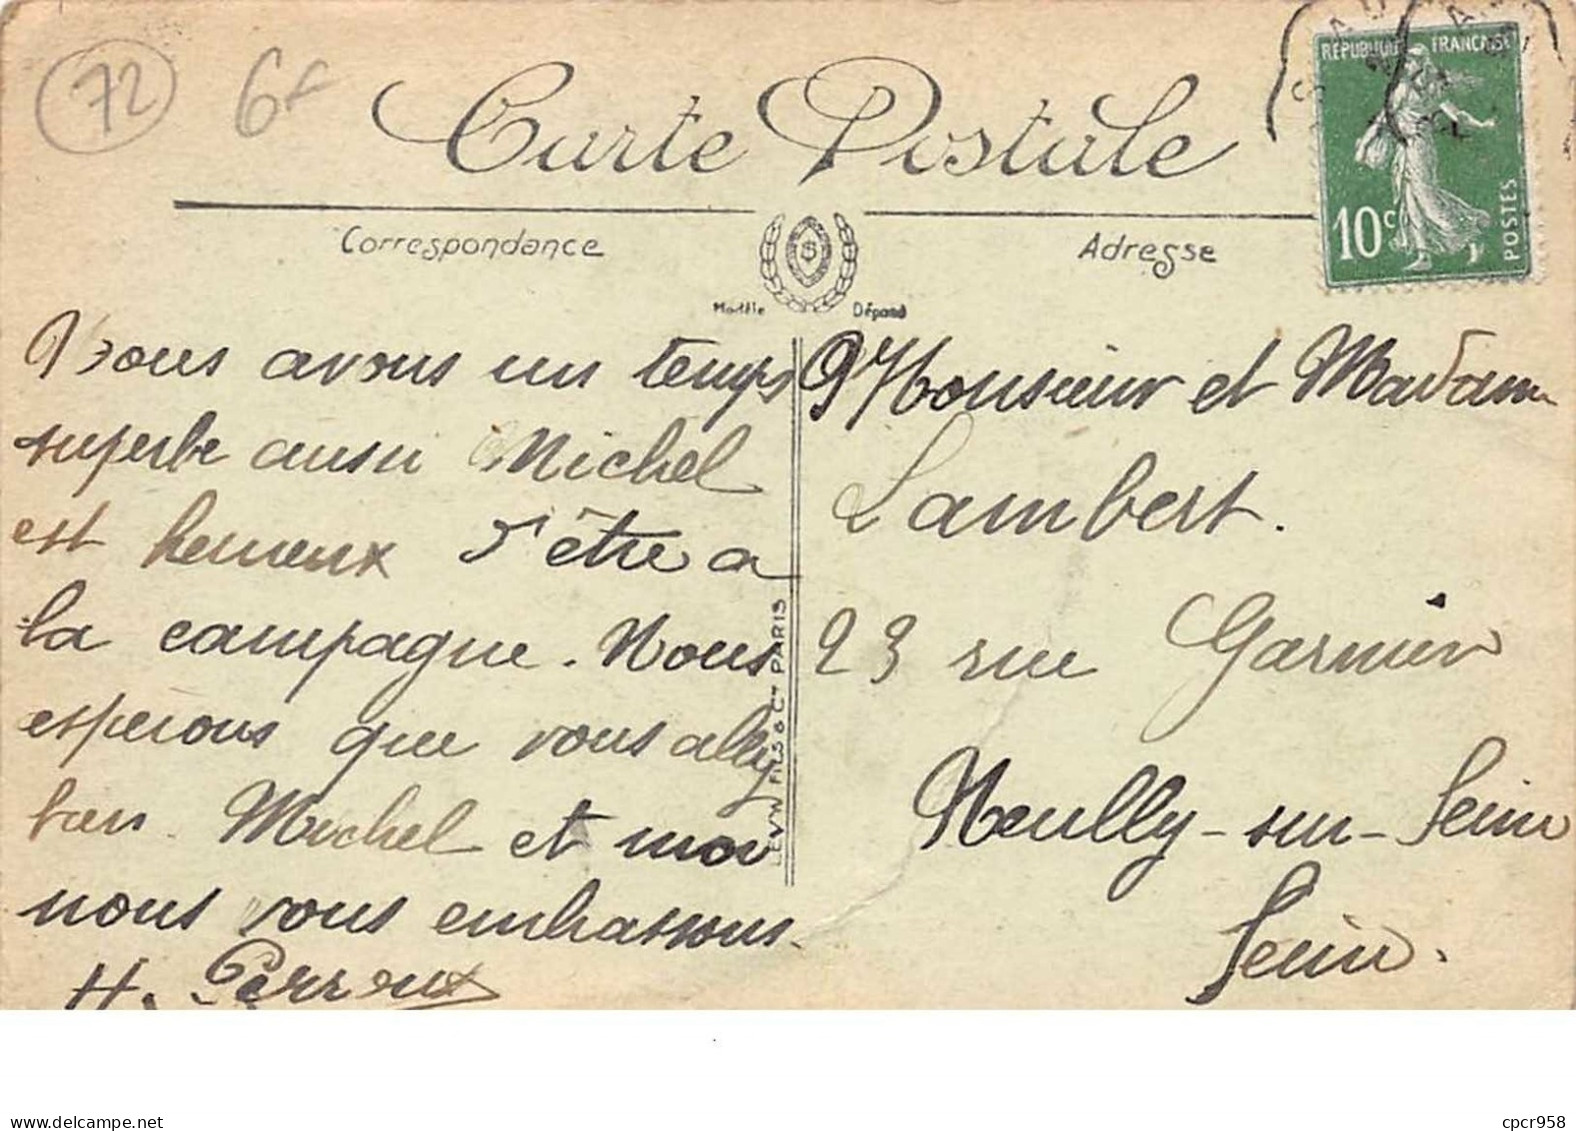 72 6f
Carte Postale
RÉPUBLIQUE FRANÇAISE
10c
POSTES
Correspondance
Adresse
$
Modèle Déposé
Nous avons un temps
superbe aussi Michel
est heureux d'être a
la campagne. Nous
esperons que vous allez
bien. Michel et moi
nous vous embrassons.
H. Perroux
LEVY FILS & Cie PARIS
Monsieur et Madame
Lambert.
23 rue Garnier
Neuilly-sur-Seine
Seine.
delcampe.net
cpcr958